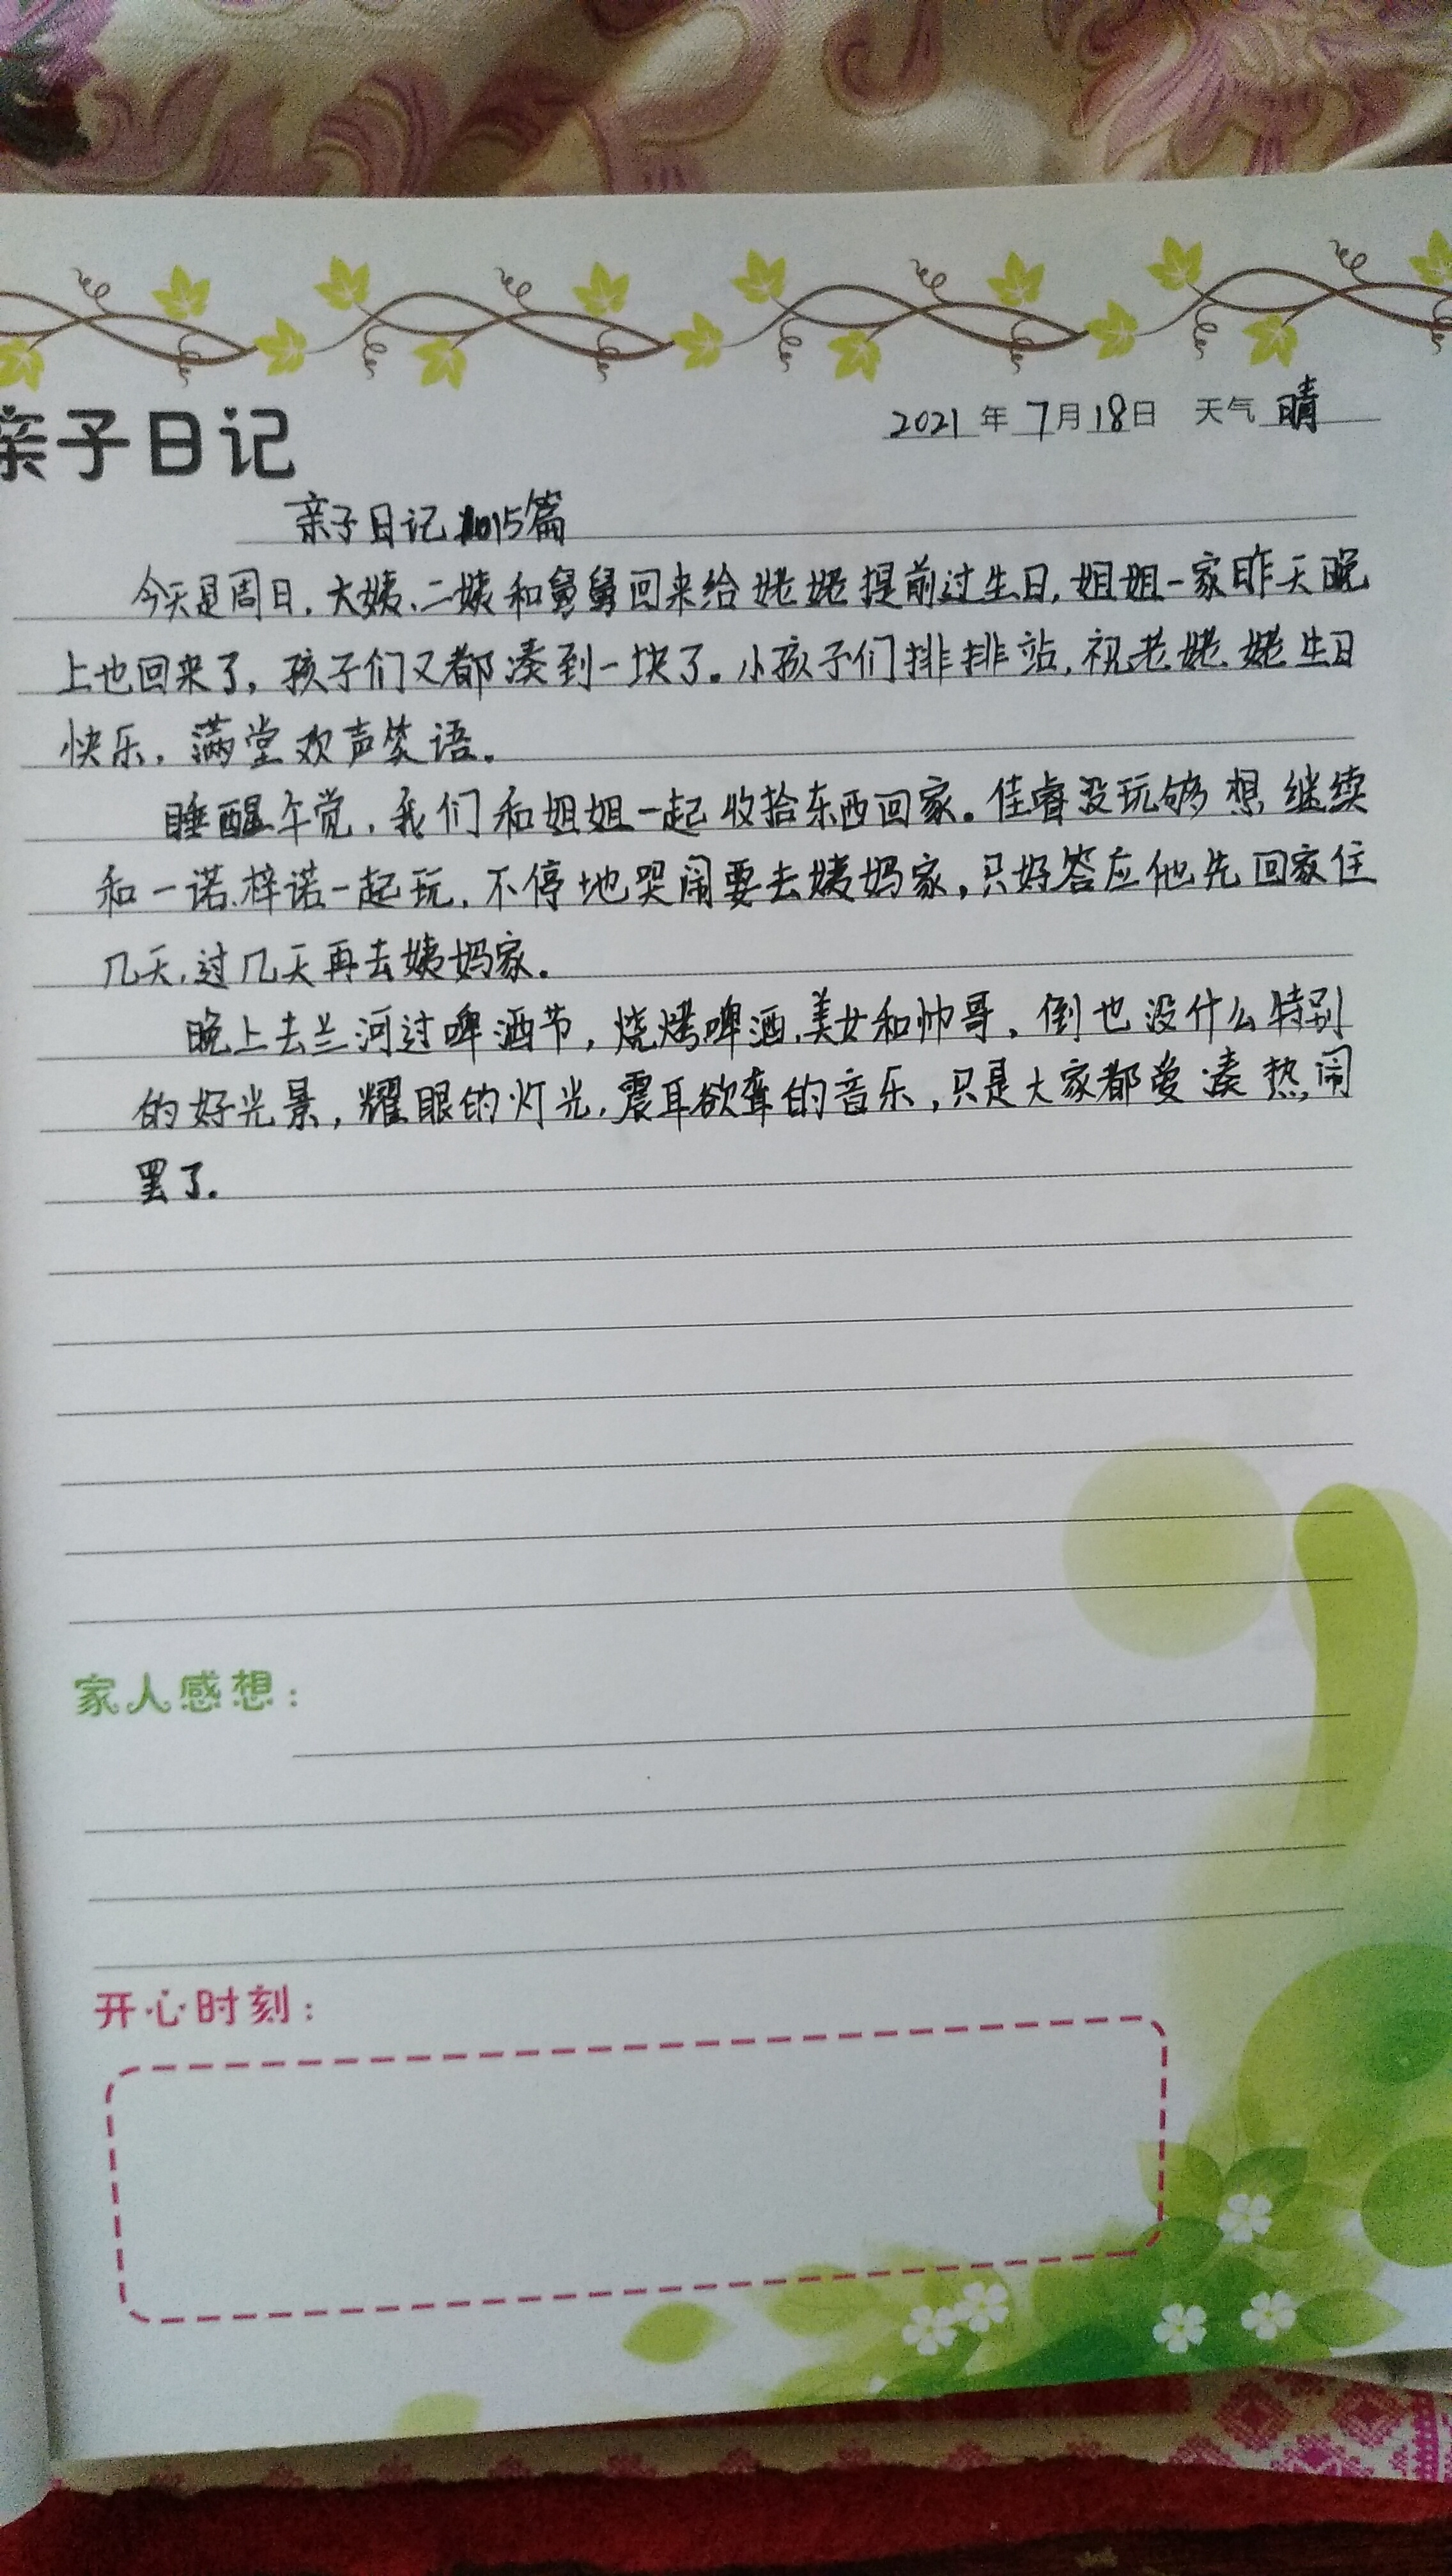 亲子日记
2021年7月18日 天气 晴
亲子日记1015篇
今天是周日，大姨、二姨和舅舅回来给姥姥提前过生日，姐姐一家昨天晚
上也回来了，孩子们又都凑到一块了。小孩子们排排站，祝老姥姥生日
快乐，满堂欢声笑语。
睡醒午觉，我们和姐姐一起收拾东西回家。佳睿没玩够想继续
和一诺、梓诺一起玩，不停地哭闹要去姨妈家，只好答应他先回家住
几天，过几天再去姨妈家。
晚上去兰河过啤酒节，烧烤啤酒、美女和帅哥，倒也没什么特别
的好光景，耀眼的灯光，震耳欲聋的音乐，只是大家都爱凑热闹
罢了。
家人感想：
开心时刻：